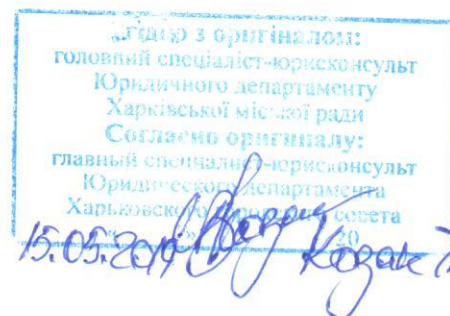 з оригіналом:
головний спеціаліст-юрисконсульт
Юридичного департаменту
Харківської міської ради
Согласно оригиналу:
главный специалист-юрисконсульт
Юридического департамента
Харьковского совета
20
15.05.2019 Козак